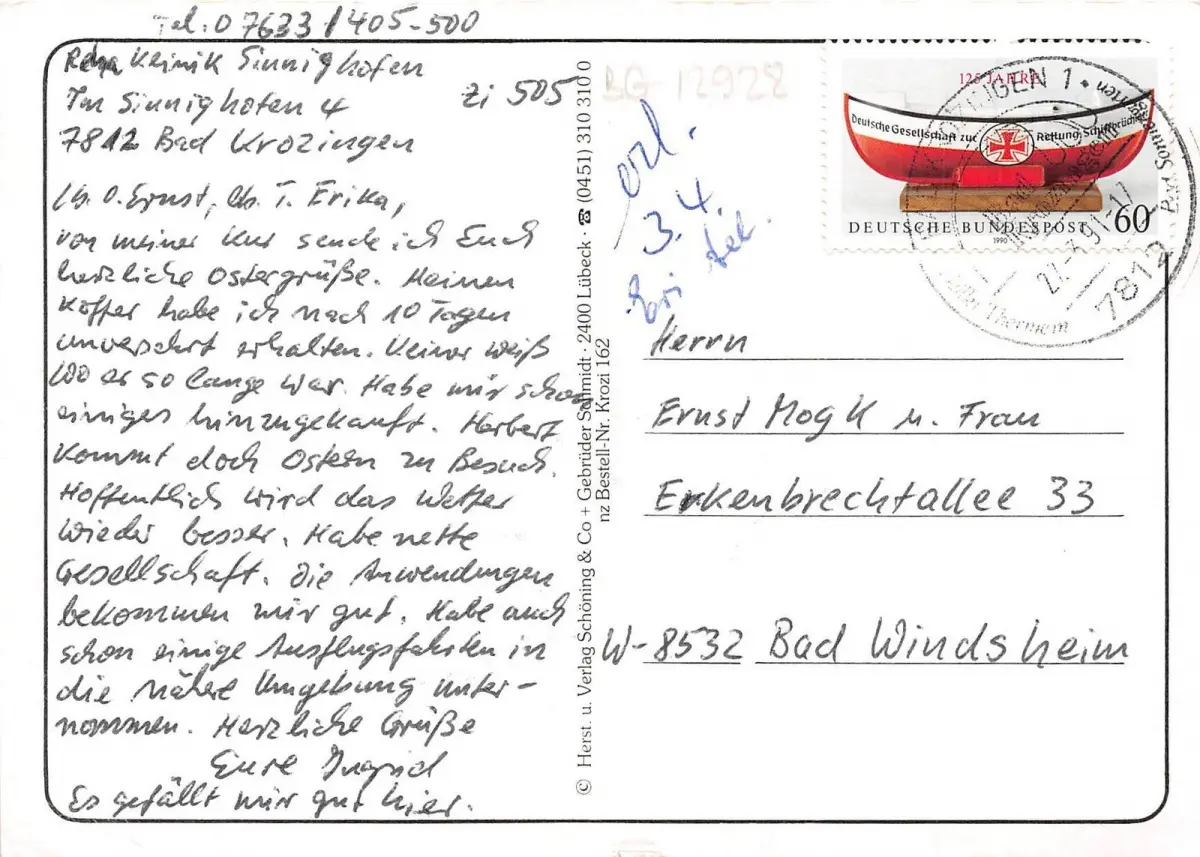 Tel. 07633/405-500
Reha Keinik Sinnighofen
Im Sinnighofen 4
Zi 505
7812 Bad Krozingen
Lb. O. Ernst, lb. T. Erika,
von meiner Kur sende ich Euch
herzliche Ostergrüße. Meinen
Koffer habe ich nach 10 Tagen
unversehrt erhalten. Keiner weiß
wo er so lange war. Habe mir schon
einiges hinzugekauft. Herbert
kommt doch Ostern zu Besuch.
Hoffentlich wird das Wetter
wieder besser. Habe nette
Gesellschaft. Die Anwendungen
bekommen mir gut. Habe auch
schon einige Ausflugsfahrten in
die nähere Umgebung unter-
nommen. Herzliche Grüße
Eure Ingrid
Es gefällt mir gut hier.
© Herst. u. Verlag Schöning & Co + Gebrüder Schmidt · 2400 Lübeck · ☎ (0451) 310 310 0
nz Bestell-Nr. Krozi 162
BG 12928
erl.
3. 4.
tel.
125 JAHRE
Deutsche Gesellschaft zur Rettung Schiffbrüchiger
DEUTSCHE BUNDESPOST 60
1990
KROZINGEN 1
7812
Herrn
Ernst Mogk u. Frau
Erkenbrechtallee 33
W-8532 Bad Windsheim